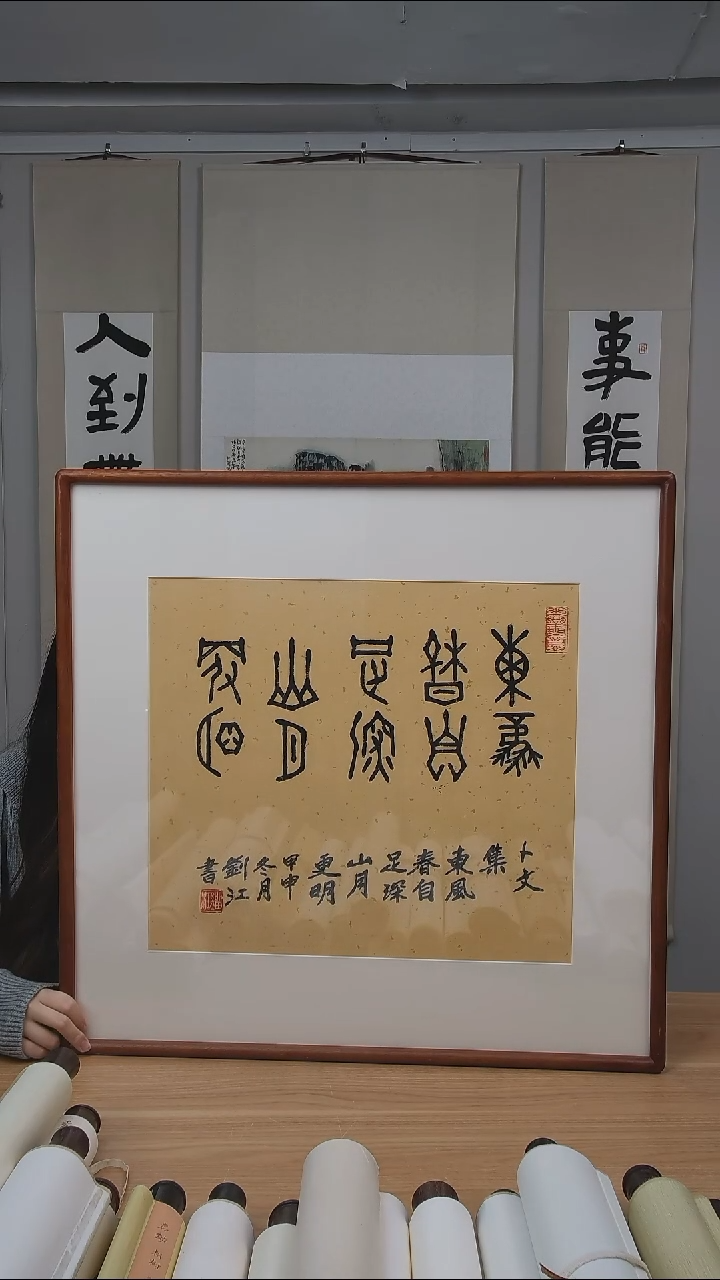 東風
春自
足深
山月
更明
卜文
集
東風
春自
足深
山月
更明
甲申
冬月
劉江
書
事能
人到